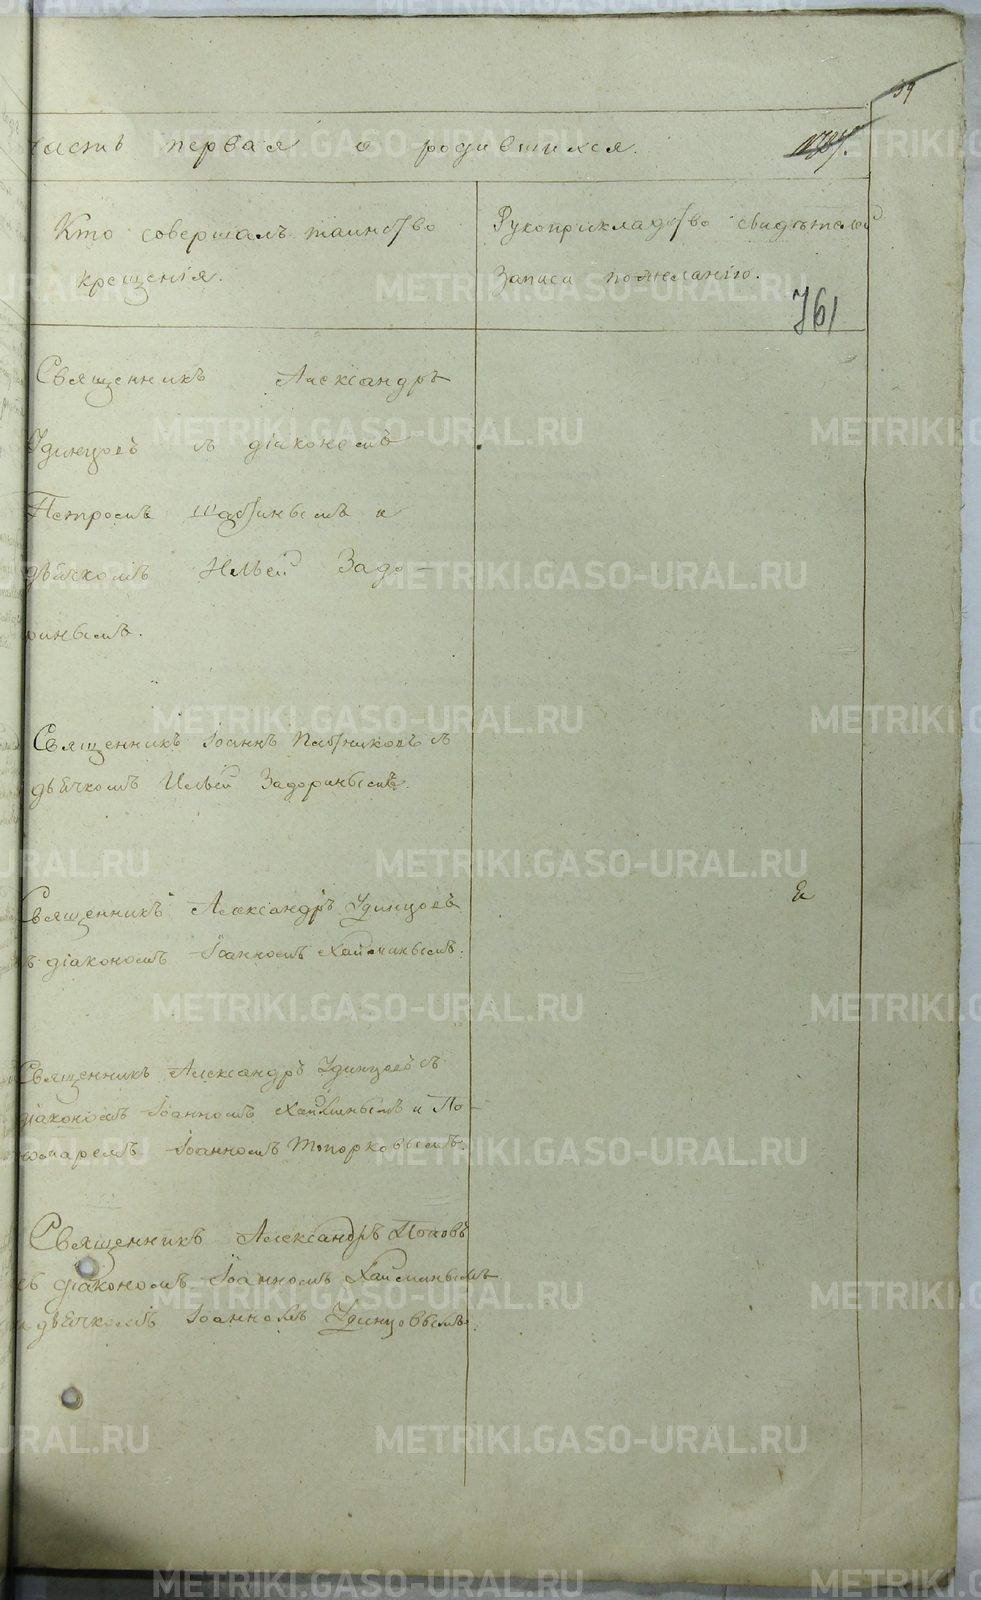 39
часть первая о родившихся.
Кто совершалъ таинство
крещенія.
Рукоприкладство свидѣтелей
Записи по желанію.
761
Священникъ Александръ
Удинцовъ съ діакономъ
Петромъ Шабинымъ и
дьячкомъ Ильей Задо-
ринымъ.
Священникъ Іоаннъ съ
дьячкомъ Ильей Задоринымъ.
Священникъ Александръ Удинцовъ
съ діакономъ Іоанномъ
Священникъ Александръ Удинцовъ съ
діакономъ Іоанномъ и По-
номаремъ Іоанномъ Топорковымъ.
Священникъ Александръ Поповъ
съ діакономъ Іоанномъ
и дьячкомъ Іоанномъ Удинцовымъ.
METRIKI.GASO-URAL.RU